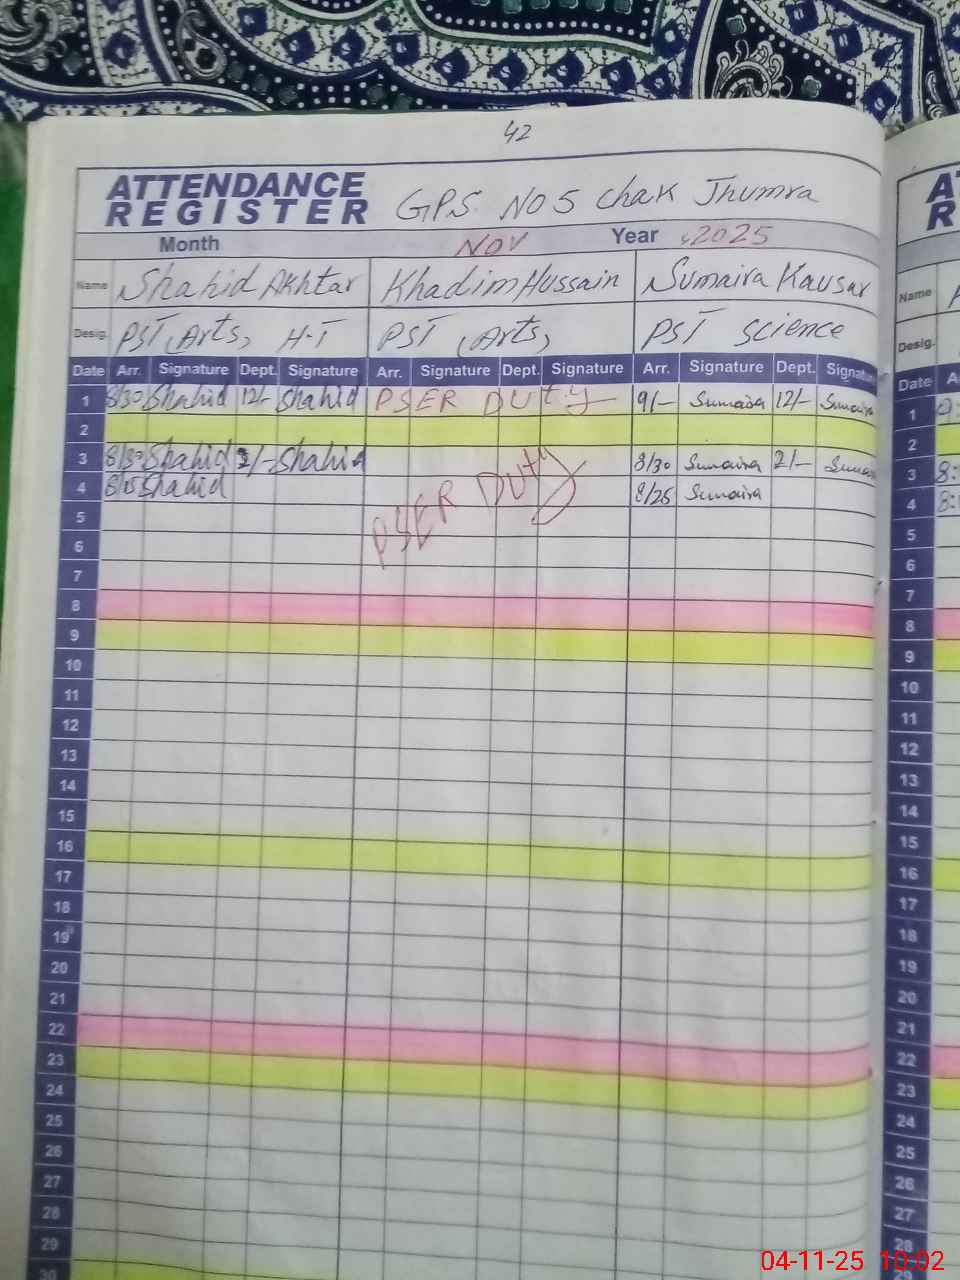 42
ATTENDANCE REGISTER GPS NO 5 Chak Jhumra
Month Nov Year 2025
Name Shahid Akhtar Khadim Hussain Sumaira Kausar
Desig. PST (Arts) H-T PST (Arts) PST Science
Date Arr. Signature Dept. Signature Arr. Signature Dept. Signature Arr. Signature Dept. Signature
1 8/30 Shahid 12/- Shahid PSER DUty 9/- Sumaira 12/- Sumaira
2
3 8/30 Shahid 2/- Shahid PSER DUty 8/30 Sumaira 2/- Sumaira
4 Shahid 8/25 Sumaira
5
6
7
8
9
10
11
12
13
14
15
16
17
18
19
20
21
22
23
24
25
26
27
28
29
30
Name
Desig.
Date
1
2
3 8:
4 8:
5
6
7
8
9
10
11
12
13
14
15
16
17
18
19
20
21
22
23
24
25
26
27
28
04-11-25 10:02